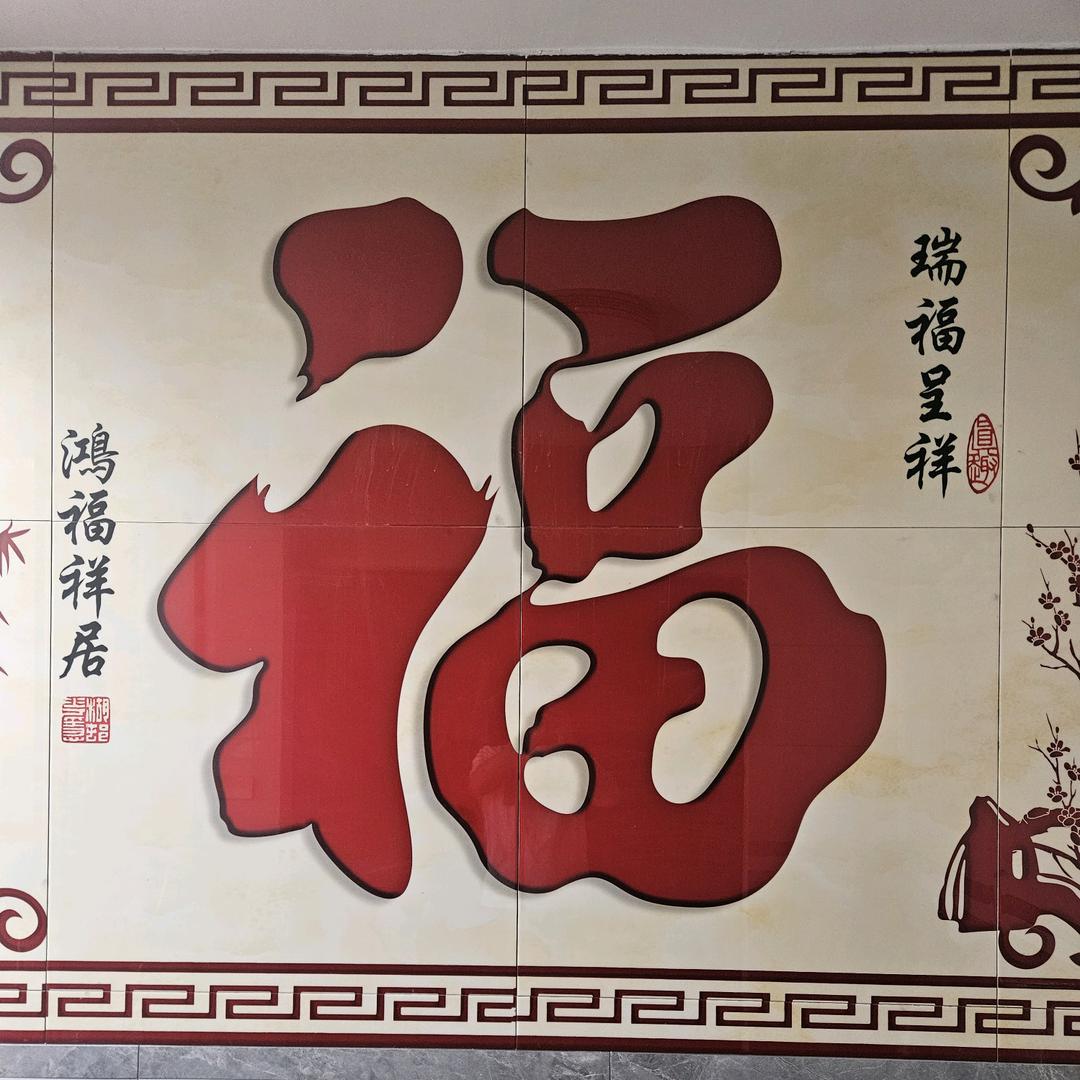 瑞福呈祥
福
鸿福祥居